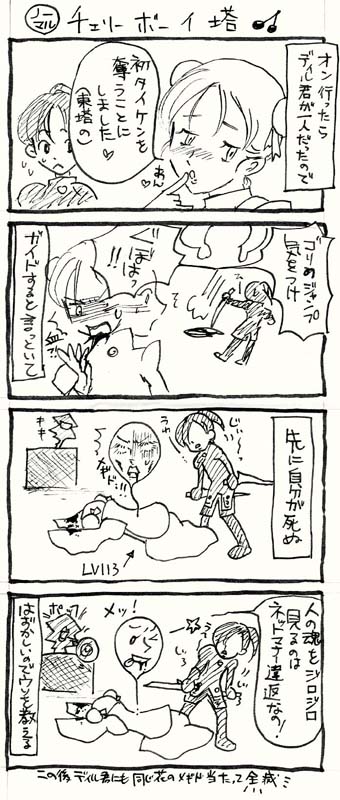 ノーマル
チェリーボーイ塔
オン行ったら
ディル君が一人だったので
初タイケンを
奪うことに
しました♡
(東塔の)
あん♡
ゴリめジャンプ
気をつけ
ごぼぼっ
!!
ガイドすると言っといて
先に自分が死ぬ
じぃ〜
キキ
LV113
人の魂をジロジロ
見るのは
ネットマナー違反なの!
メッ!
ポッ
はずかしいのでウソを教える
この後、ディル君にも同じ花のメギド当たって全滅